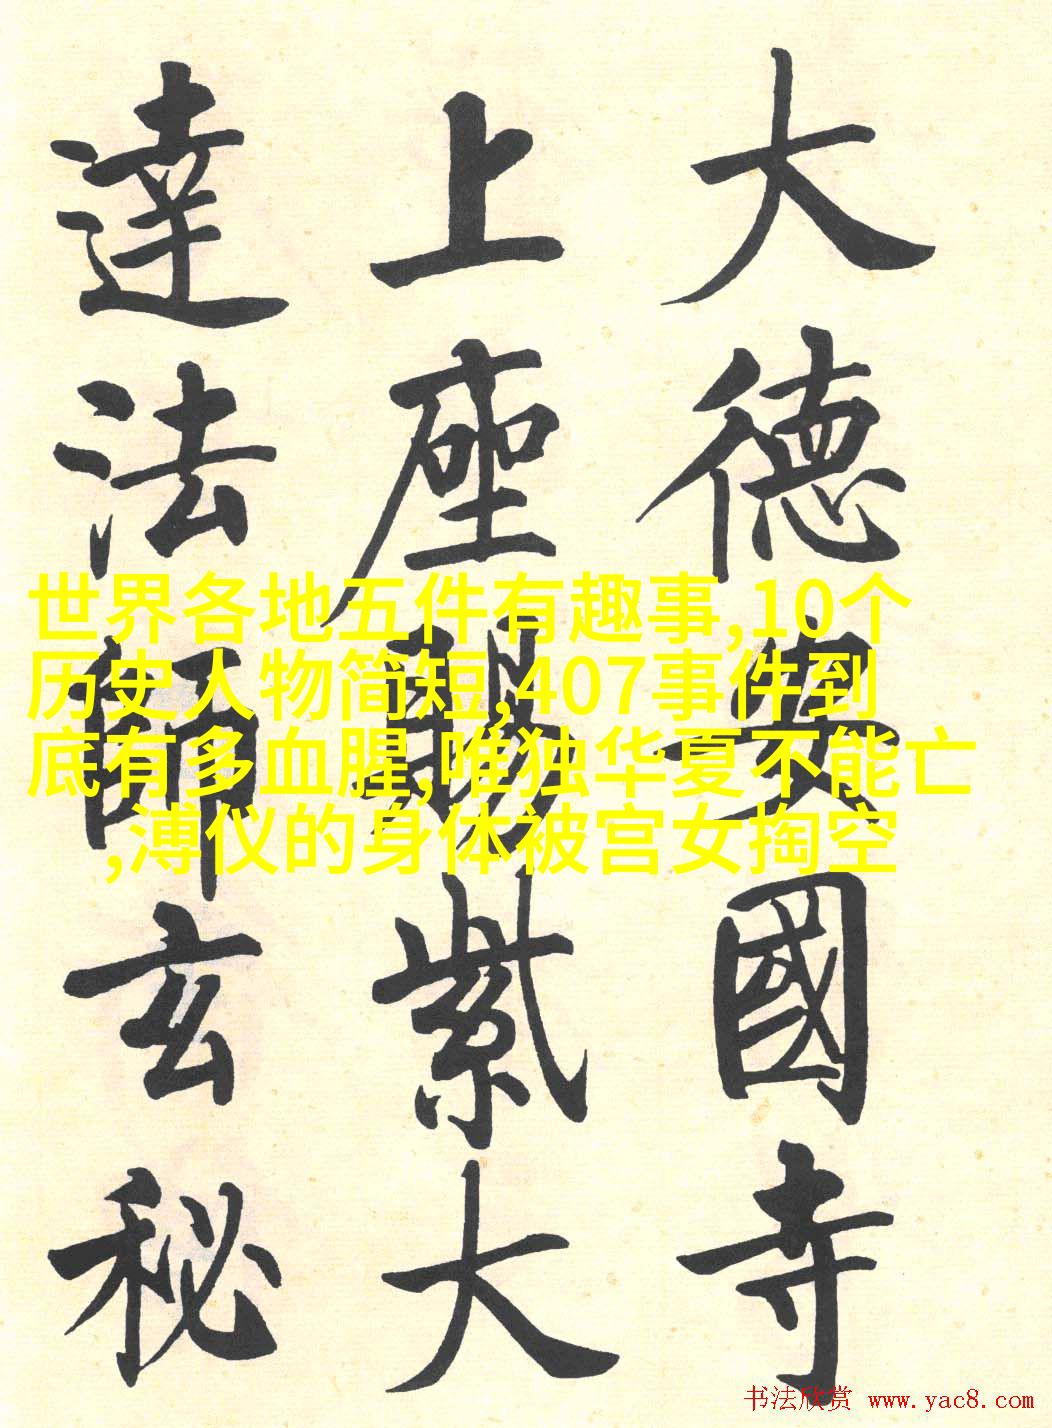 大德安國寺
上座賜紫大
達法師玄秘
世界各地五件有趣事,10个
历史人物简短,407事件到
底有多血腥,唯独华夏不能亡
,溥仪的身体被宫女掏空
书法欣赏 www.yac8.com